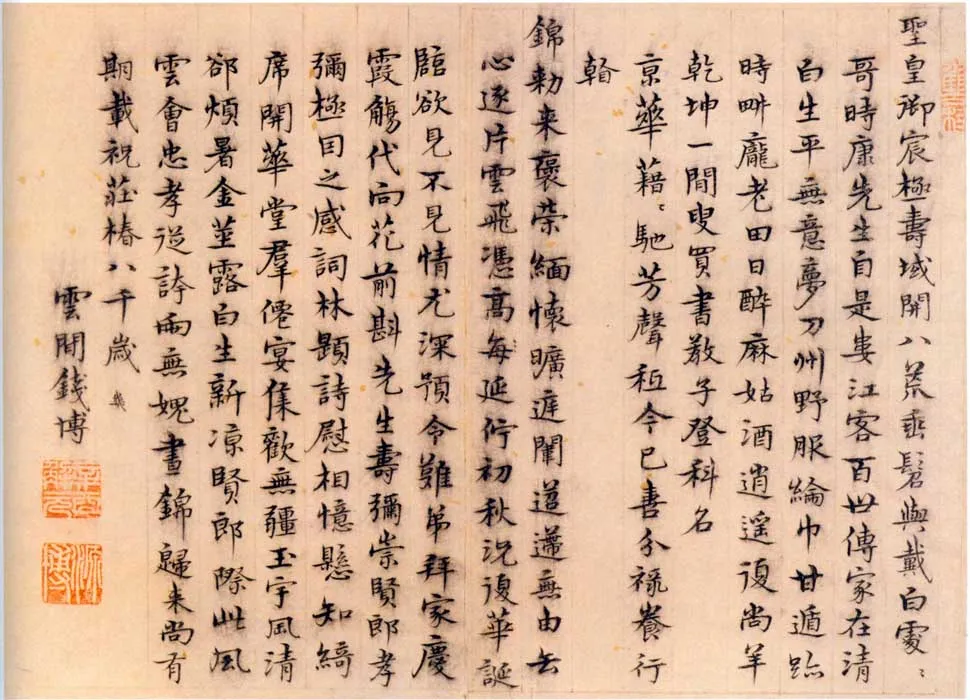 聖皇御宸極壽域開八荒垂髫與戴白處〻
哥時康先生自是婁江客百世傳家在清
白生平無意夢刀州野服綸巾甘遁跡
時時龐老田日醉麻姑酒逍遥復尚羊
乾坤一閒叟買書教子登科名
京華藉〻馳芳聲秪今已喜分祿養行
看
錦勅来褒荣緬懷曠遅闈迢遰無由去
心逐片雲飛憑高每延佇初秋況復華誕
臨欲見不見情尤深預令難弟拜家慶
霞觴代向花前斟先生壽彌崇賢郎孝
彌極因之感詞林題詩慰相憶懸知綺
席開華堂羣僊宴集歡無疆玉宇風清
郤煩暑金莖露白生新凉賢郎際此風
雲會忠孝從誇兩無媿晝錦歸来尚有
期載祝莊椿八千歲
雲間錢博